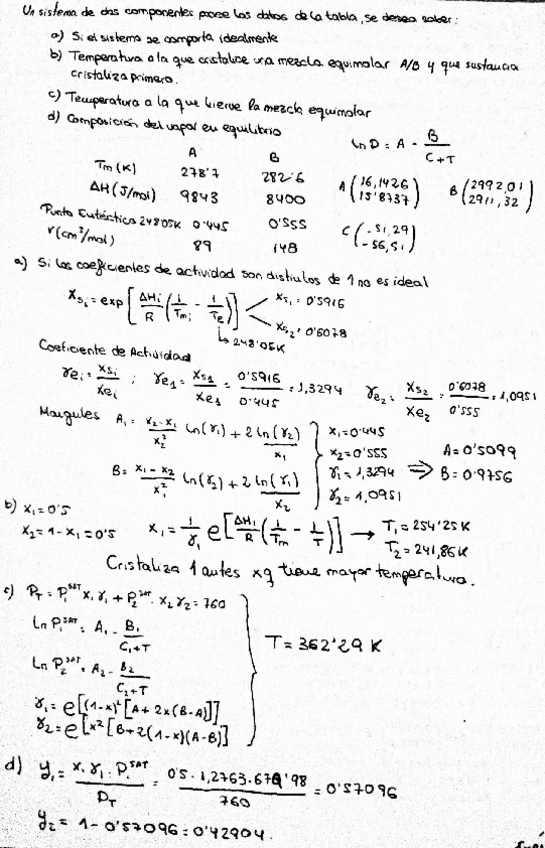 Un sistema de dos componentes posee los datos de la tabla, se desea saber:
a) Si el sistema se comporta idealmente
b) Temperatura a la que cristalice una mezcla equimolar A/B y que sustancia
cristaliza primero.
c) Temperatura a la que hierve la mezcla equimolar
d) Composición del vapor en equilibrio
ln D = A - B/(C+T)
A B
Tm (K) 278'7 282'6
ΔH (J/mol) 9843 8400
A (16,1426 15'8737) B (2992,01 2911,32)
Punto Eutéctico 248'05K 0'445 0'555
C (-51,29 -56,51)
V (cm³/mol) 89 148
a) Si los coeficientes de actividad son distintos de 1 no es ideal
Xsi = exp[ΔHi/R (1/Tmi - 1/Te)] Xs1 = 0'5916
Xs2 = 0'6078
↳ 248'05K
Coeficiente de Actividad
γei = Xsi/Xei ; γe1 = Xs1/Xe1 = 0'5916/0'445 = 1,3294 γe2 = Xs2/Xe2 = 0'6078/0'555 = 1,0951
Margules A = (x2-x1)/x2² ln(γ1) + 2 ln(γ2)/x1
B = (x1-x2)/x1² ln(γ2) + 2 ln(γ1)/x2
x1 = 0'445
x2 = 0'555
γ1 = 1,3294
γ2 = 1,0951
⇒ A = 0'5099
B = 0'9756
b) x1 = 0'5
x2 = 1-x1 = 0'5
x1 = 1/γ1 e[ΔHi/R (1/Tm - 1/T)] → T1 = 254'25K
T2 = 241,86K
Cristaliza 1 antes xq tiene mayor temperatura.
c) PT = P1^SAT x1 γ1 + P2^SAT · x2 γ2 = 760
ln P1^SAT = A1 - B1/(C1+T)
ln P2^SAT = A2 - B2/(C2+T)
γ1 = e[(1-x)² [A+2x(B-A)]]
γ2 = e[x² [B+2(1-x)(A-B)]]
T = 362'29 K
d) y1 = x1 γ1 · P1^SAT/PT = 0'5 · 1,2763 · 679'98/760 = 0'57096
y2 = 1 - 0'57096 = 0'42904.